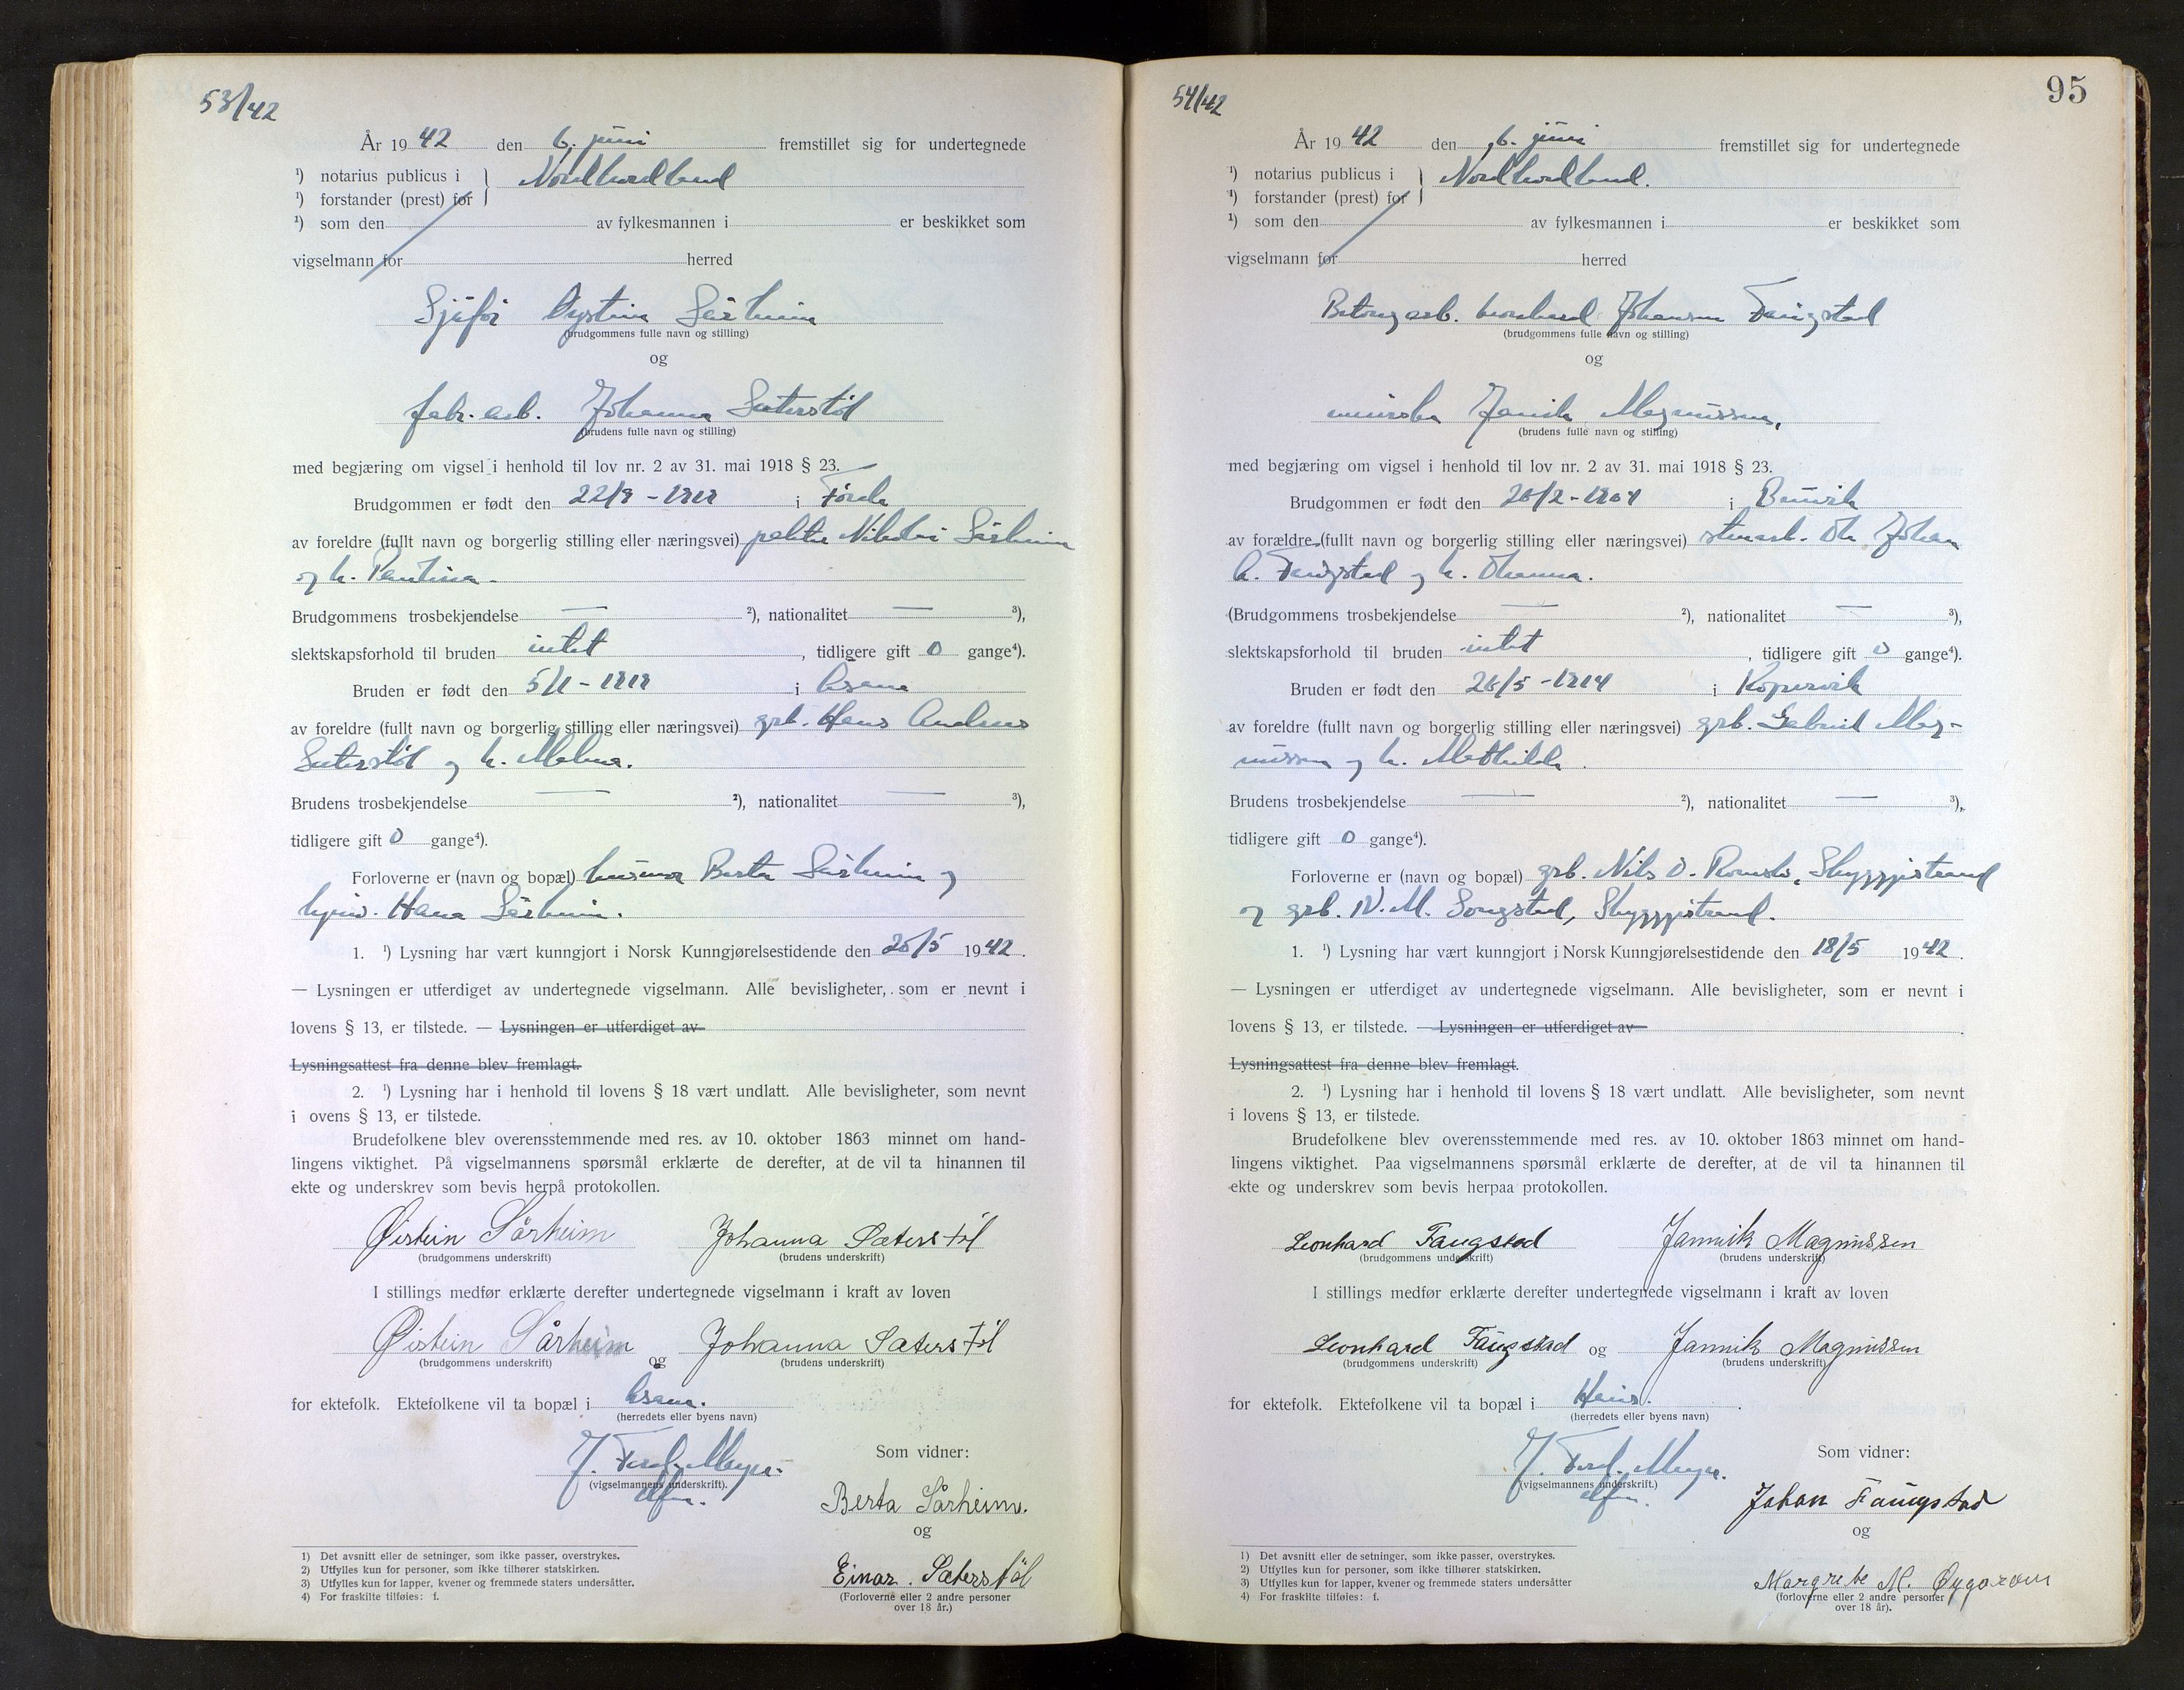 53/42
År 1942 den 6. juni fremstillet sig for undertegnede
¹) notarius publicus i } Nordhordland
¹) forstander (prest) for
¹) som den av fylkesmannen i er beskikket som
vigselmann for herred
Sjåfør Øystein Sårheim
(brudgommens fulle navn og stilling)
og
fabr. arb. Johanna Sæterstøl
(brudens fulle navn og stilling)
med begjæring om vigsel i henhold til lov nr. 2 av 31. mai 1918 § 23.
Brudgommen er født den i Førde
av foreldre (fullt navn og borgerlig stilling eller næringsvei) Nikolai Sårheim
og h. Pauline.
Brudgommens trosbekjendelse — ²), nationalitet — ³),
slektskapsforhold til bruden intet, tidligere gift 0 gange⁴).
Bruden er født den i Åsane
av foreldre (fullt navn og borgerlig stilling eller næringsvei) grb. Hans Andreas
Sæterstøl og h. Malena.
Brudens trosbekjendelse — ²), nationalitet — ³),
tidligere gift 0 gange⁴).
Forloverne er (navn og bopæl) husmor Berta Sårheim og
Hans Sårheim.
1. ¹) Lysning har vært kunngjort i Norsk Kunngjørelsestidende den 20/5 1942.
— Lysningen er utferdiget av undertegnede vigselmann. Alle bevisligheter, som er nevnt i
lovens § 13, er tilstede. — Lysningen er utferdiget av
Lysningsattest fra denne blev fremlagt.
2. ¹) Lysning har i henhold til lovens § 18 vært undlatt. Alle bevisligheter, som nevnt
i ovens § 13, er tilstede.
Brudefolkene blev overensstemmende med res. av 10. oktober 1863 minnet om hand-
lingens viktighet. På vigselmannens spørsmål erklærte de derefter, at de vil ta hinannen til
ekte og underskrev som bevis herpå protokollen.
Øistein Sårheim Johanna Sæterstøl
(brudgommens underskrift) (brudens underskrift)
I stillings medfør erklærte derefter undertegnede vigselmann i kraft av loven
Øistein Sårheim og Johanna Sæterstøl
(brudgommens underskrift) (brudens underskrift)
for ektefolk. Ektefolkene vil ta bopæl i Åsane.
(herredets eller byens navn)
J. Ferd. Meyer.
(vigselmannens underskrift).
Som vidner:
Berta Sårheim.
og
Einar. Sæterstøl
(Forloverne eller 2 andre personer
over 18 år.)
1) Det avsnitt eller de setninger, som ikke passer, overstrykes.
2) Utfylles kun for personer, som ikke tilhører statskirken.
3) Utfylles kun for lapper, kvener og fremmede staters undersåtter.
4) For fraskilte tilføies: f.
54/42
95
År 1942 den 6. juni fremstillet sig for undertegnede
¹) notarius publicus i } Nordhordland.
¹) forstander (prest) for
¹) som den av fylkesmannen i er beskikket som
vigselmann for herred
Betongarb. Leonhard Johansen Faugstad
(brudgommens fulle navn og stilling)
og
Jannik Magnussen,
(brudens fulle navn og stilling)
med begjæring om vigsel i henhold til lov nr. 2 av 31. mai 1918 § 23.
Brudgommen er født den i Bruvik
av forældre (fullt navn og borgerlig stilling eller næringsvei) Johan
A. Faugstad og h. Ohanna.
(Brudgommens trosbekjendelse — ²), nationalitet — ³),
slektskapsforhold til bruden intet, tidligere gift 0 gange⁴).
Bruden er født den 26/5 - 1914 i Kopervik
av foreldre (fullt navn og borgerlig stilling eller næringsvei) grb. Gabriel Mag-
nussen og h. Mathilde.
Brudens trosbekjendelse — ²), nationalitet — ³),
tidligere gift 0 gange⁴).
Forloverne er (navn og bopæl) grb. Nils O. Romslo, Skuggistrand
og grb. N. M. Songstad, Skuggistrand.
1. ¹) Lysning har vært kunngjort i Norsk Kunngjørelsestidende den 18/5 1942.
— Lysningen er utferdiget av undertegnede vigselmann. Alle bevisligheter, som er nevnt i
lovens § 13, er tilstede. — Lysningen er utferdiget av
Lysningsattest fra denne blev fremlagt.
2. ¹) Lysning har i henhold til lovens § 18 vært undlatt. Alle bevisligheter, som nevnt
i lovens § 13, er tilstede.
Brudefolkene blev overensstemmende med res. av 10. oktober 1863 minnet om hand-
lingens viktighet. Paa vigselmannens spørsmål erklærte de derefter, at de vil ta hinannen til
ekte og underskrev som bevis herpaa protokollen.
Leonhard Faugstad Jannik Magnussen
(brudgommens underskrift) (brudens underskrift)
I stillings medfør erklærte derefter undertegnede vigselmann i kraft av loven
Leonhard Faugstad og Jannik Magnussen
(brudgommens underskrift) (brudens underskrift)
for ektefolk. Ektefolkene vil ta bopæl i Haus.
(herredets eller byens navn)
J. Ferd. Meyer.
(vigselmannens underskrift.)
Som vidner:
Johan Faugstad
og
Margrete M. Øygarden
(forloverne eller 2 andre personer
over 18 år).
1) Det avsnitt eller de setninger, som ikke passer, overstrykes.
2) Utfylles kun for personer, som ikke tilhører statskirken.
3) Utfylles kun for lapper, kvener og fremmede staters undersåtter
4) For fraskilte tilføies: f.